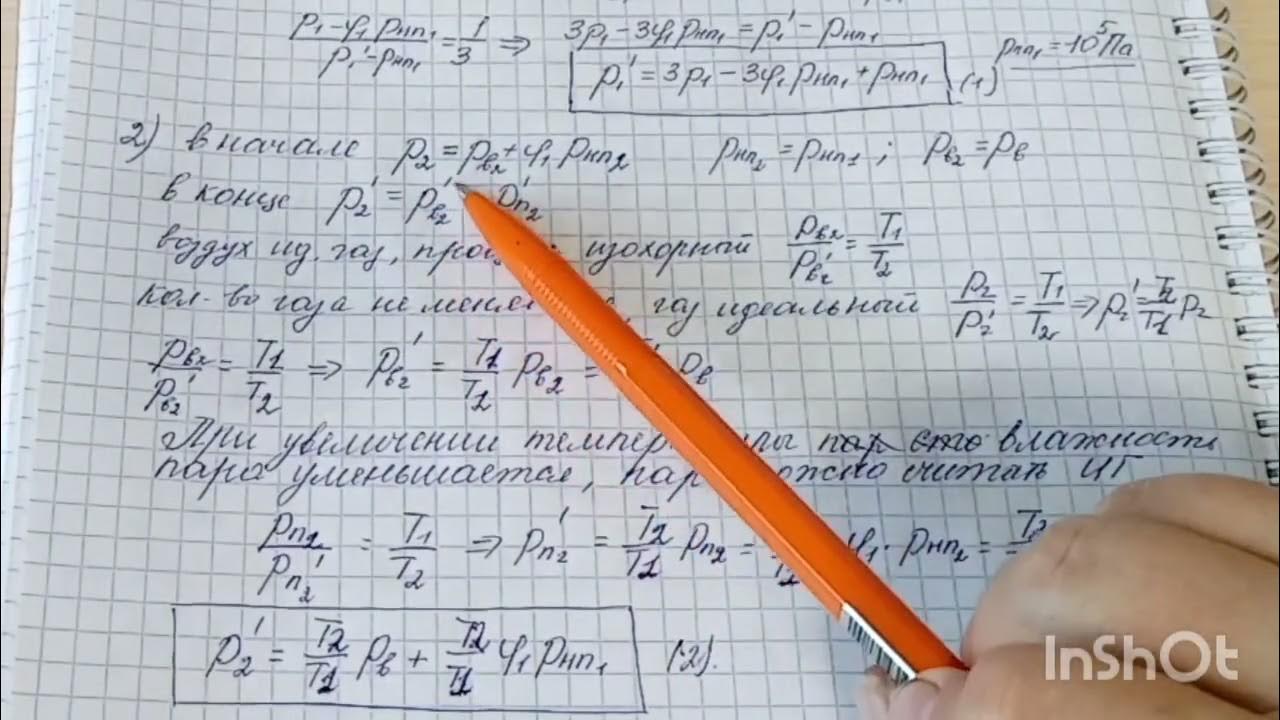 p₁-φ₁pнп₁/p₁'-pнп₁ = 1/3 ⇒ 3p₁-3φ₁pнп₁ = p₁'-pнп₁
p₁' = 3p₁-3φ₁pнп₁+pнп₁ (1) pнп₁=10⁵Па
2) в начале p₂=pв₂+φ₁pнп₂ pнп₂=pнп₁; pв₂=pв
в конце p₂'=pв₂' pп₂'
воздух ид. газ, изохорный pв₂/pв₂' = T₁/T₂
кол-во газа не газ идеальный p₂/p₂' = T₁/T₂ ⇒ p₂'=T₂/T₁ p₂
pв₂/pв₂' = T₁/T₂ ⇒ pв₂' = T₂/T₁ pв₂ = pв
При увеличении влажность
пара уменьшается, считать ИГ
pп₂/pп₂' = T₁/T₂ ⇒ pп₂' = T₂/T₁ pп₂ = φ₁·pнп₂ = T₂
p₂' = T₂/T₁ pв + T₂/T₁ φ₁pнп₁ (2).
InShOt